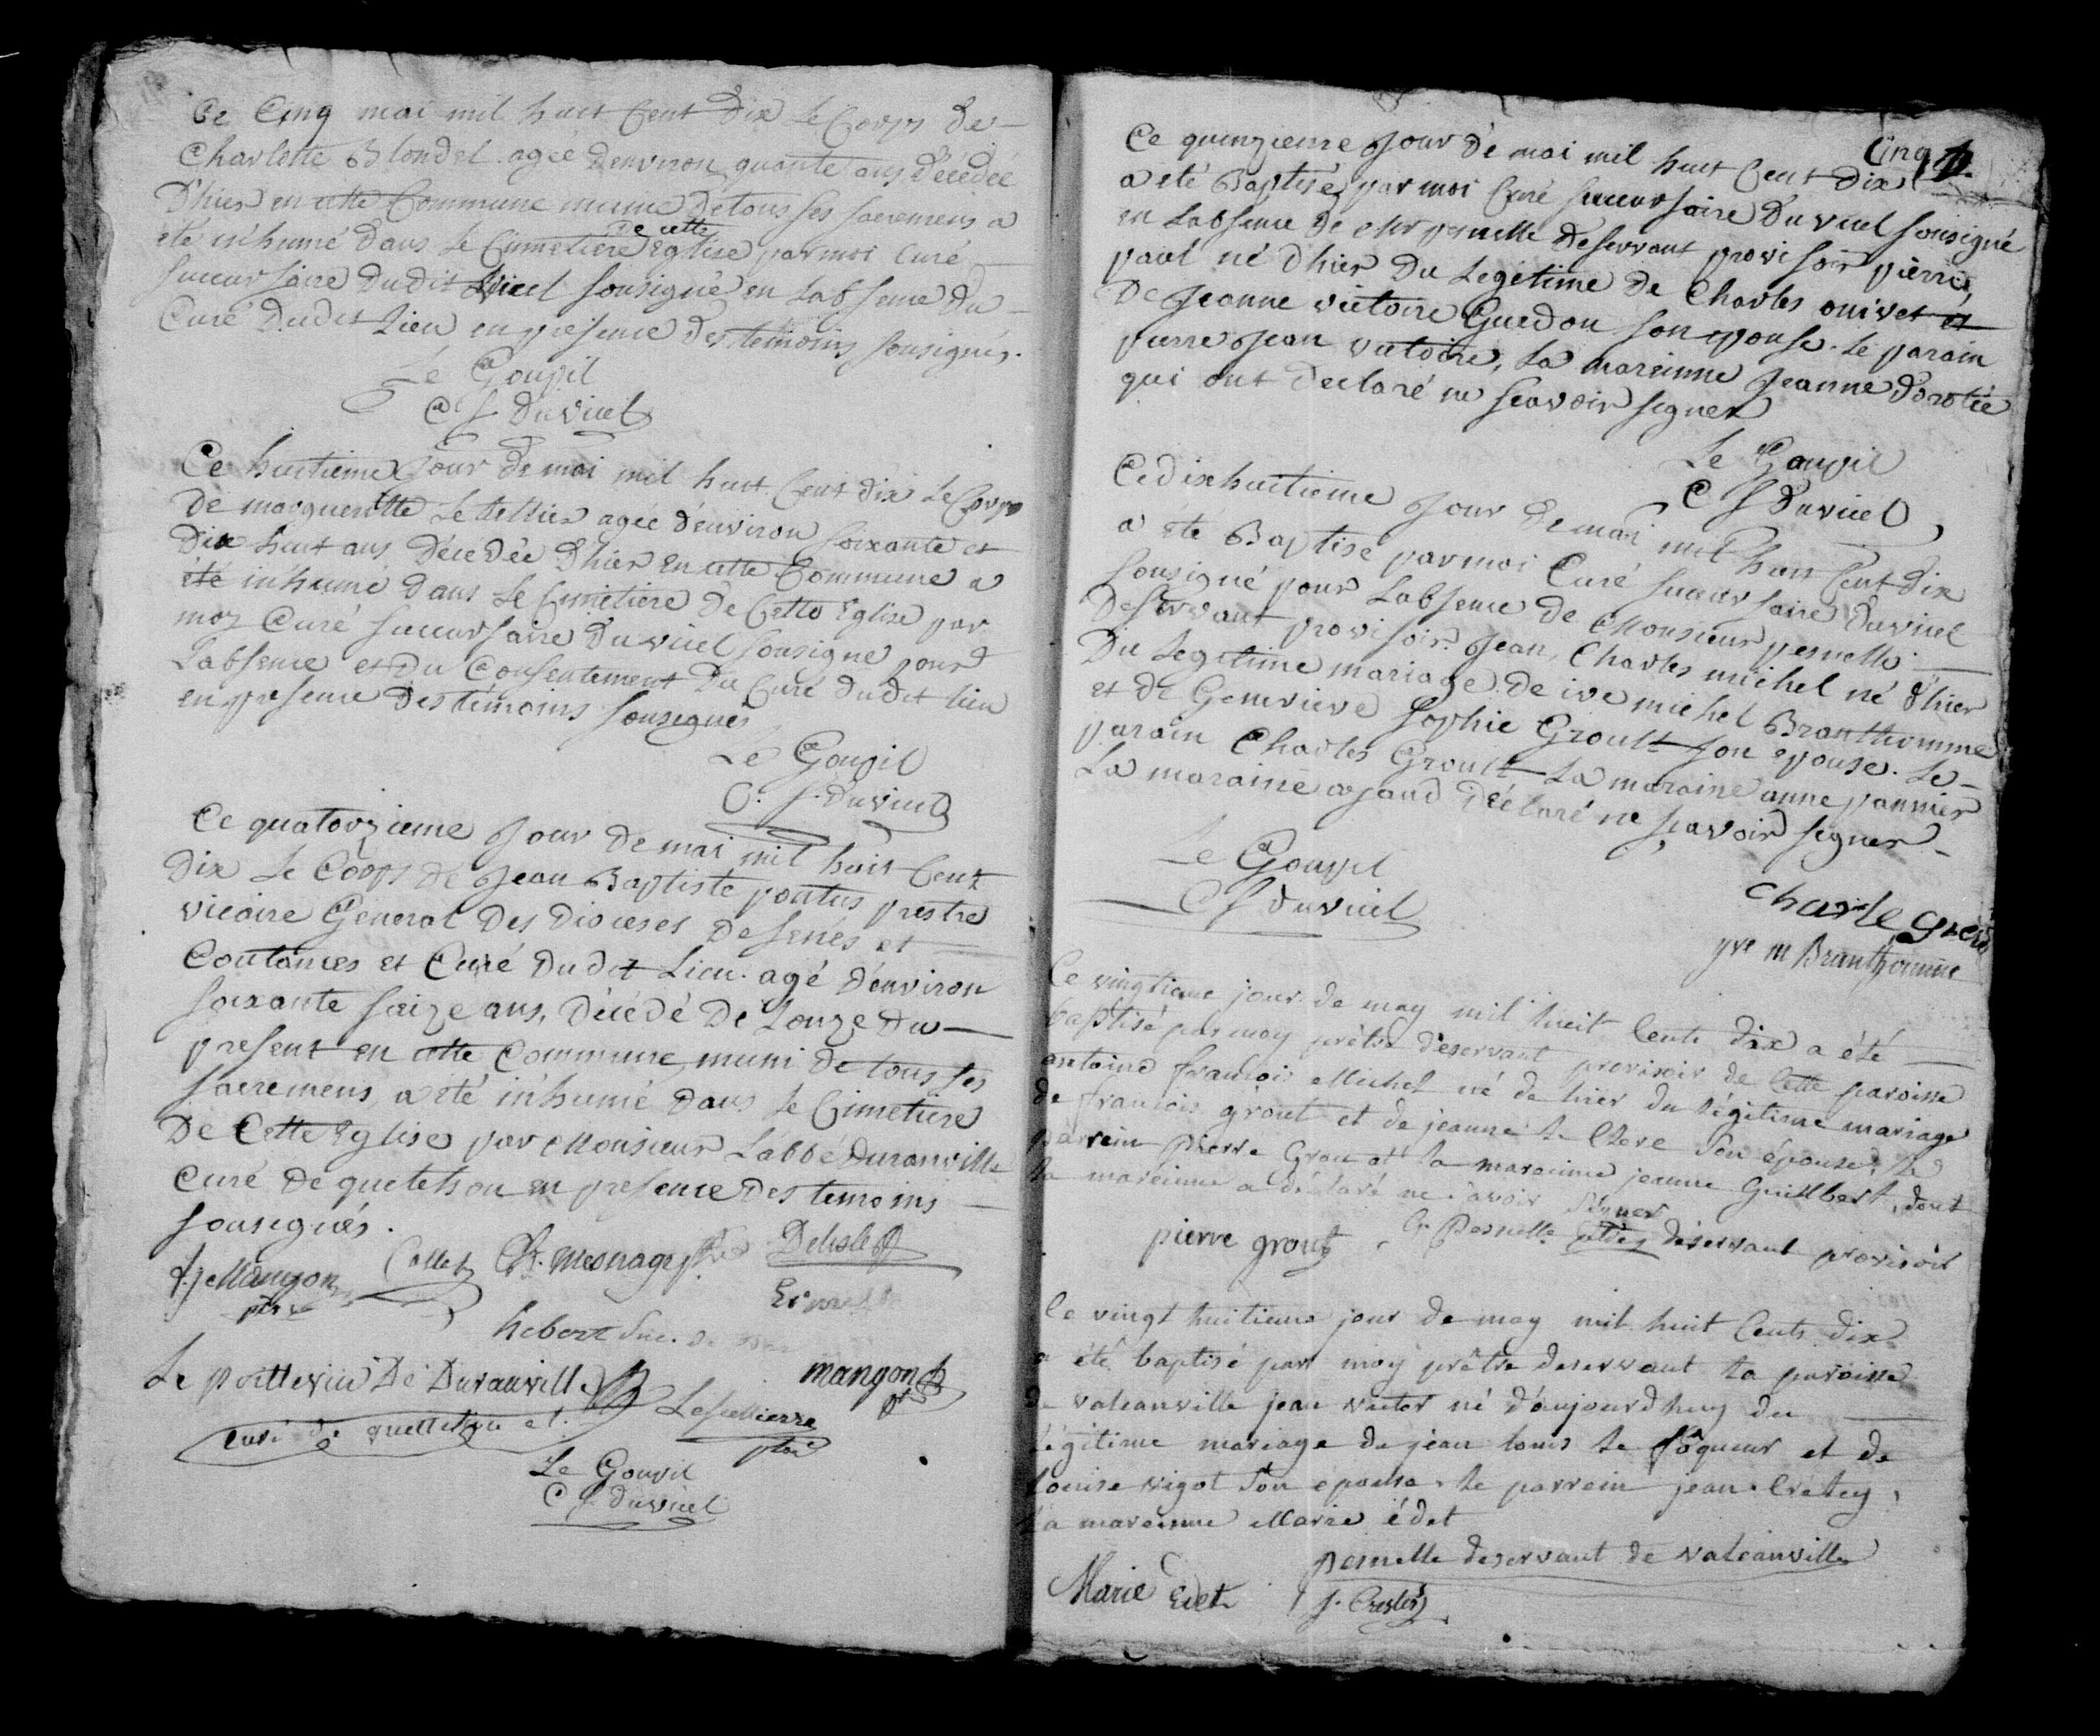 Ce Cinq mai mil huit Cent Dix Le Corps De
Charlotte Blondel agée d'environ quante ans Décédée
D'hier en cette Commune munie De tous ses sacremens a
de cette
été in'humé Dans Le Cimetiere Eglise par moi Curé
succursaire Dudit Vicel sousigné en L'absence Du
Curé Dudit Lieu en présence Des témoins sousignés.
Le Goupil
C S Duvicel
Ce huitieme jour De mai mil huit Cent dix Le Corps
De margueritte Le tellier agée d'environ soixante et
Dix huit ans Décedée D'hier En cette Commune a
été in'humé Dans Le Cimetiere De Cette Eglise par
moy Curé succursaire Duvicel sousigné pour
L'absence et Du Consentement Du Curé Dudit lieu
en presence Des témoins sousignés
Le Goupil
C. S. Duvicel
Ce quatorzieme jour De mai mil huit Cent
Dix Le Corps De Jean Baptiste pontus prestre
vicaire General Des Dioceses De senés et
Coutances et Curé Dudit Lieu. agé d'environ
soixante saize ans, Décédé De L'onze Du
present en cette Commune, muni De tous ses
sacremens, a été in'humé Dans Le Cimetiere
De Cette Eglise par Monsieur L'abbé Duranville
Curé De quetehou en presence Des temoins
sousignés.
Mangon Collet Ch. Mesnage ptre Delisle
ptre
hebert
Le poittevin De Duranville mangon
ptre
curé de quettehou et. Lepellierre
ptre
Le Goupil
C S Duvicel
Cinq
Ce quinzieme Jour De mai mil huit Cent Dix
a été Baptisé par moi Curé succursaire Du vicel sousigné
en L'absence De Mr pesnelle Deservant provisoir pierre
paul né D'hier Du Legitime De Charles onivet et
De Jeanne victoire Guedon son epouse. Le parain
pierre Jean victoire, La marainne Jeanne Dorotée
qui ont Declaré ne scavoir signer
Le Goupil
C S Duvicel
Ce dixhuitieme Jour De mai mil huit Cent Dix
a été Baptise par moi Curé succursaire Duvicel
sousigné pour L'absence De Monsieur pesnelle
Deservant provisoir. Jean, Charles michel né D'hier
Du Legitime mariage De ive michel Branthomme
et De Genevieve sophie Groult son epouse. Le
parain Charles Groult La maraine anne pannier
La maraine ayand Déclaré ne scavoir signer
Le Goupil
C S duvicel
Charle Groult
yve m Branthomme
Ce vingtieme jour de may mil huit Cents dix a été
baptisé par moy prêtre deservant provisoir de Cette paroisse
antoine françois Michel né de hier du légitime mariage
de françois grout et de jeanne le Clere son épouse, le
parrein pierre Grout et la mareinne jeanne Guillbert, dont
la mareinne a déclaré ne savoir signer
pierre grout Ch Pesnelle ptre deservant provisoir
Ce vingt huitieme jour de may mil huit Cents dix
a été baptisé par moy prêtre deservant la paroisse
de valcanville jean victor né d'aujourdhuy du
légitime mariage de jean louis le foqueur et de
louise vigot son epouse. le parrein jean Cretey,
la mareinne Marie édet
pesnelle deservant de valcanville
Marie Edet J. Cretey